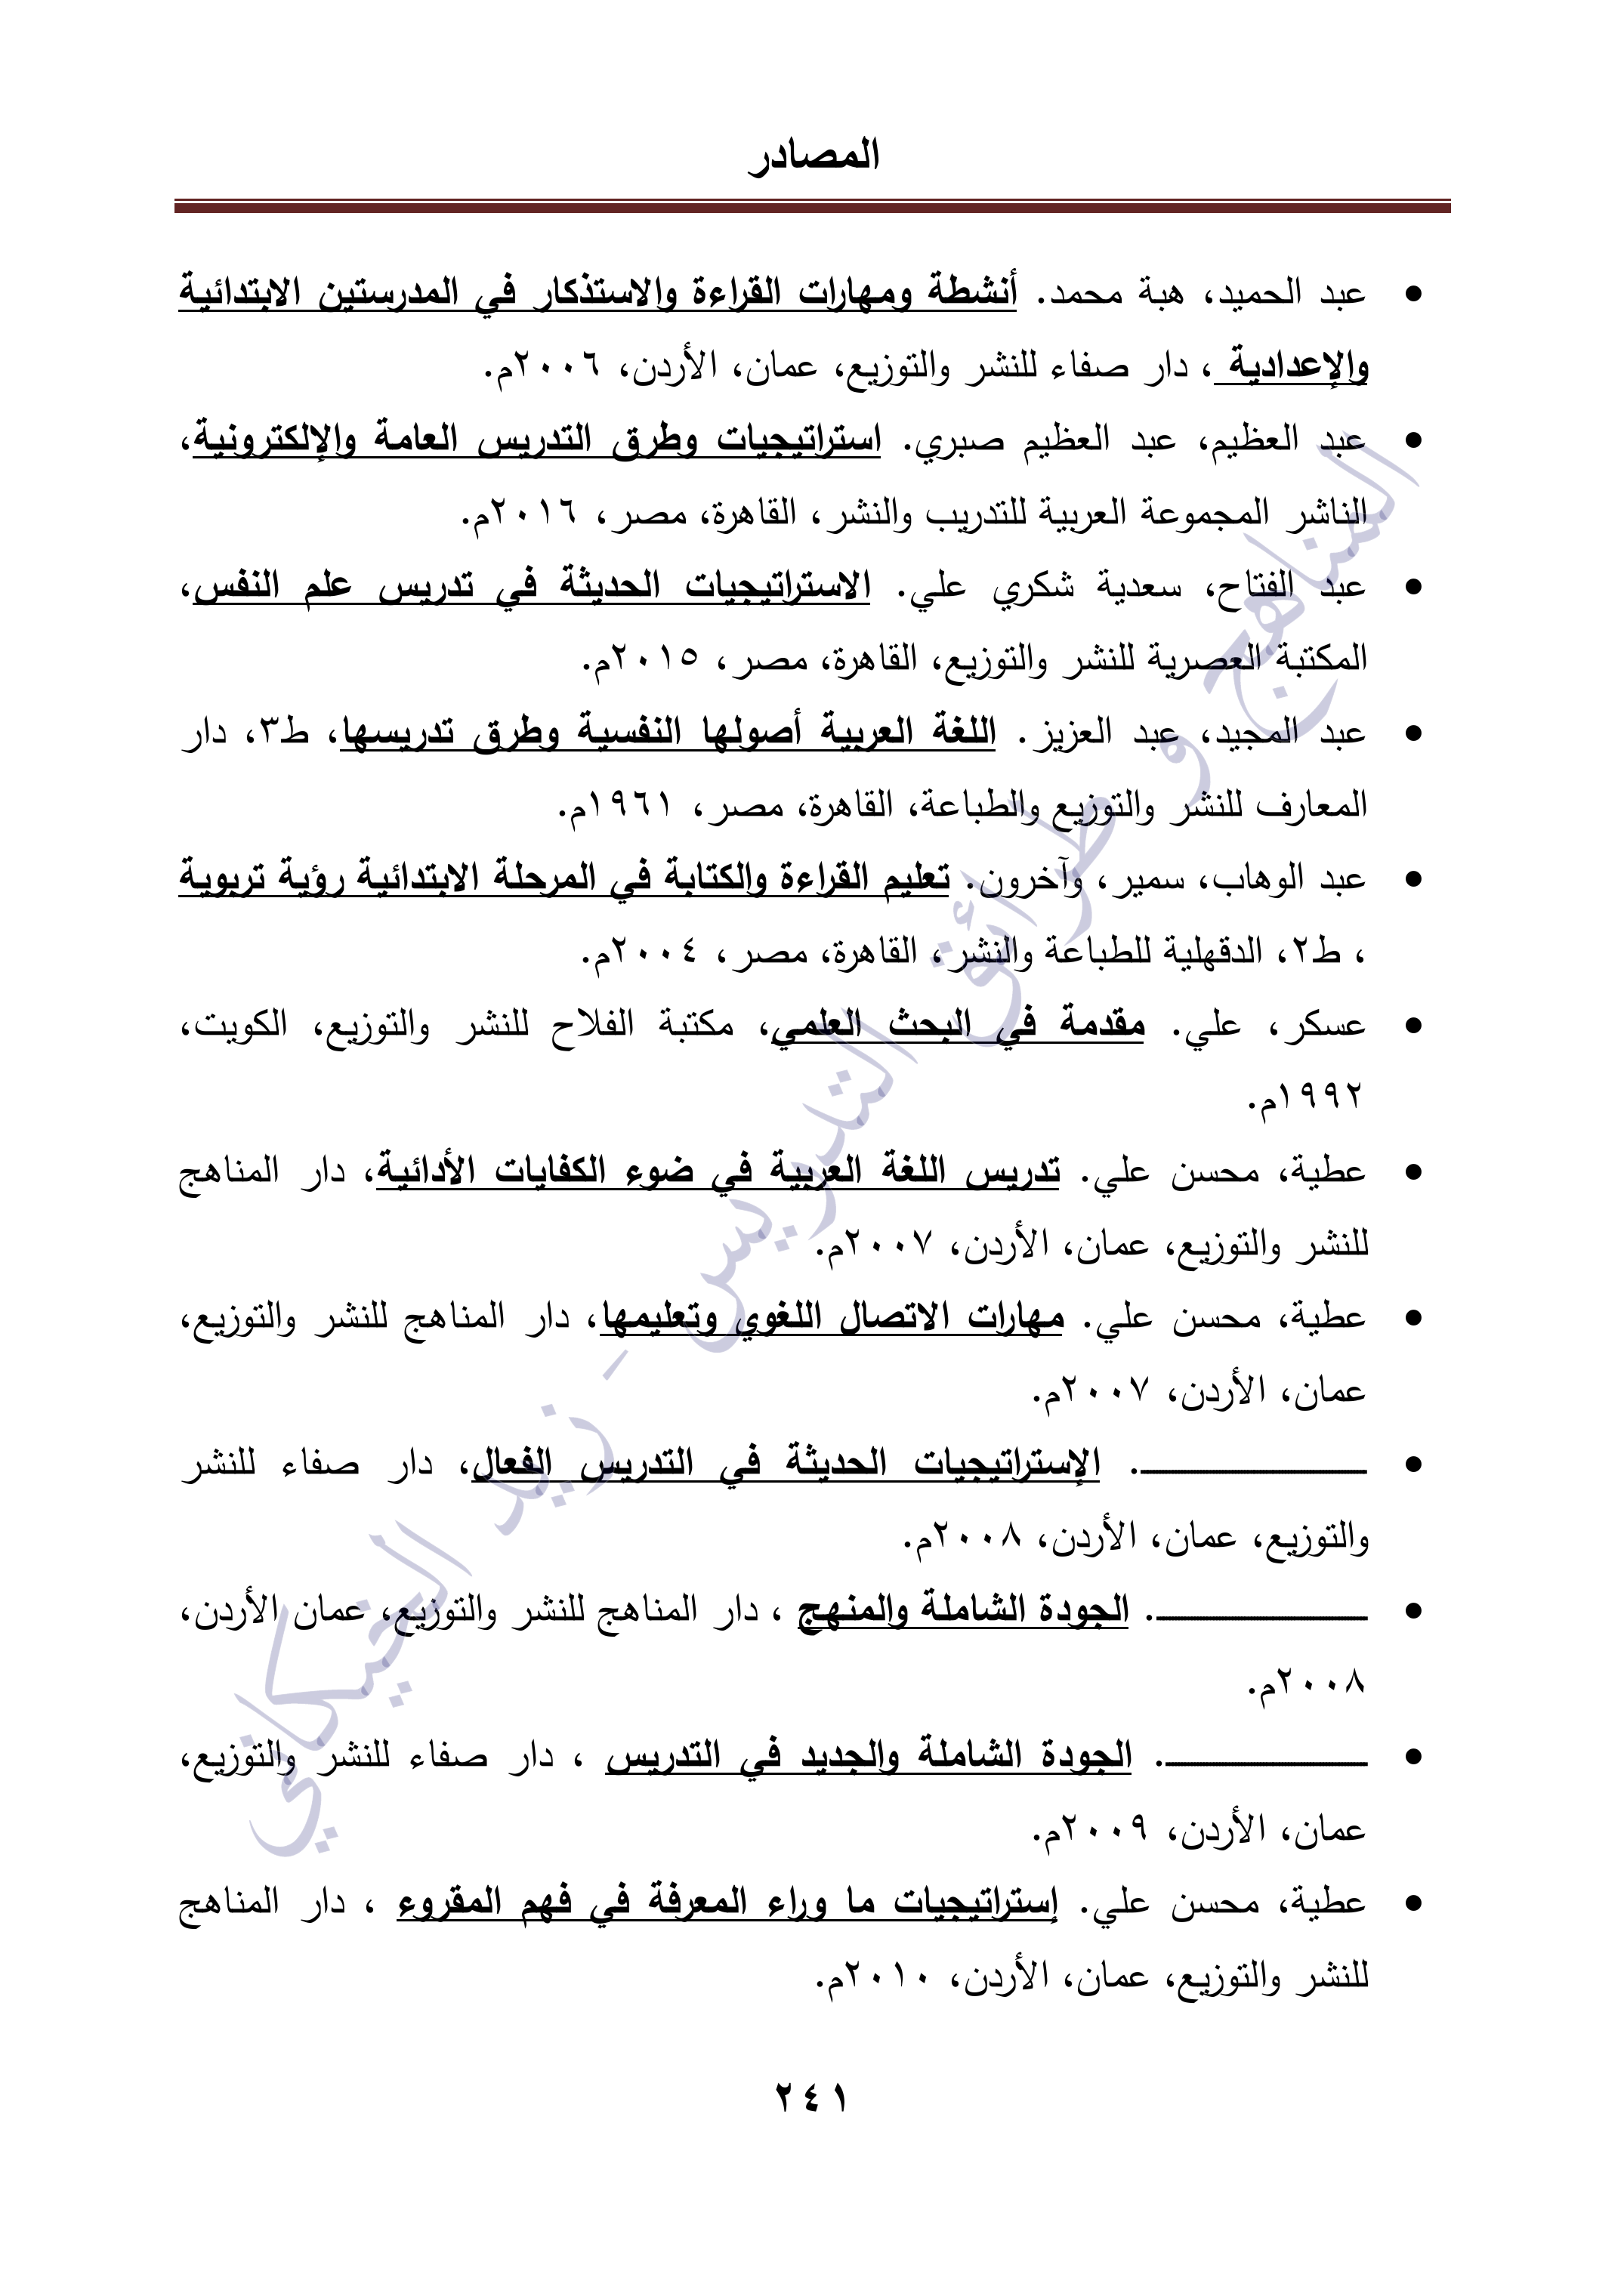 المصادر
• عبد الحميد، هبة محمد. أنشطة ومهارات القراءة والاستذكار في المدرستين الابتدائية
والإعدادية ، دار صفاء للنشر والتوزيع، عمان، الأردن، ٢٠٠٦م.
• عبد العظيم، عبد العظيم صبري. استراتيجيات وطرق التدريس العامة والإلكترونية،
الناشر المجموعة العربية للتدريب والنشر، القاهرة، مصر، ٢٠١٦م.
• عبد الفتاح، سعدية شكري علي. الاستراتيجيات الحديثة في تدريس علم النفس،
المكتبة العصرية للنشر والتوزيع، القاهرة، مصر، ٢٠١٥م.
• عبد المجيد، عبد العزيز. اللغة العربية أصولها النفسية وطرق تدريسها، ط٣، دار
المعارف للنشر والتوزيع والطباعة، القاهرة، مصر، ١٩٦١م.
• عبد الوهاب، سمير، وآخرون. تعليم القراءة والكتابة في المرحلة الابتدائية رؤية تربوية
، ط٢، الدقهلية للطباعة والنشر، القاهرة، مصر، ٢٠٠٤م.
• عسكر، علي. مقدمة في البحث العلمي، مكتبة الفلاح للنشر والتوزيع، الكويت،
١٩٩٢م.
• عطية، محسن علي. تدريس اللغة العربية في ضوء الكفايات الأدائية، دار المناهج
للنشر والتوزيع، عمان، الأردن، ٢٠٠٧م.
• عطية، محسن علي. مهارات الاتصال اللغوي وتعليمها، دار المناهج للنشر والتوزيع،
عمان، الأردن، ٢٠٠٧م.
• ــــــــــــــــــــ. الإستراتيجيات الحديثة في التدريس الفعال، دار صفاء للنشر
والتوزيع، عمان، الأردن، ٢٠٠٨م.
• ــــــــــــــــــــ. الجودة الشاملة والمنهج ، دار المناهج للنشر والتوزيع، عمان الأردن،
٢٠٠٨م.
• ــــــــــــــــــــ. الجودة الشاملة والجديد في التدريس ، دار صفاء للنشر والتوزيع،
عمان، الأردن، ٢٠٠٩م.
• عطية، محسن علي. إستراتيجيات ما وراء المعرفة في فهم المقروء ، دار المناهج
للنشر والتوزيع، عمان، الأردن، ٢٠١٠م.
٢٤١
المناهج و طرائق التدريس - زيد الخيكاني